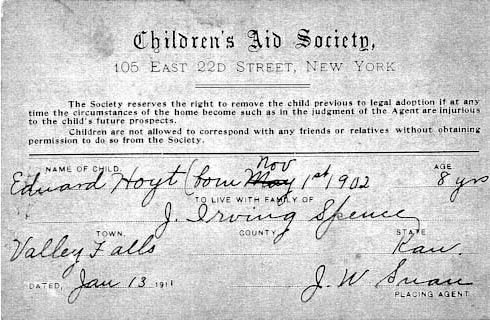 Children's Aid Society,
105 EAST 22D STREET, NEW YORK
The Society reserves the right to remove the child previous to legal adoption if at any
time the circumstances of the home become such as in the judgment of the Agent are injurious
to the child's future prospects.
Children are not allowed to correspond with any friends or relatives without obtaining
permission to do so from the Society.
NAME OF CHILD. AGE
Nov
Edward Hoyt (born May 1st 1902 8 yrs
TO LIVE WITH FAMILY OF
J. Irving Spence
TOWN. COUNTY. STATE
Valley Falls Kan.
DATED, Jan 13 1911 J. W. Swan
PLACING AGENT.